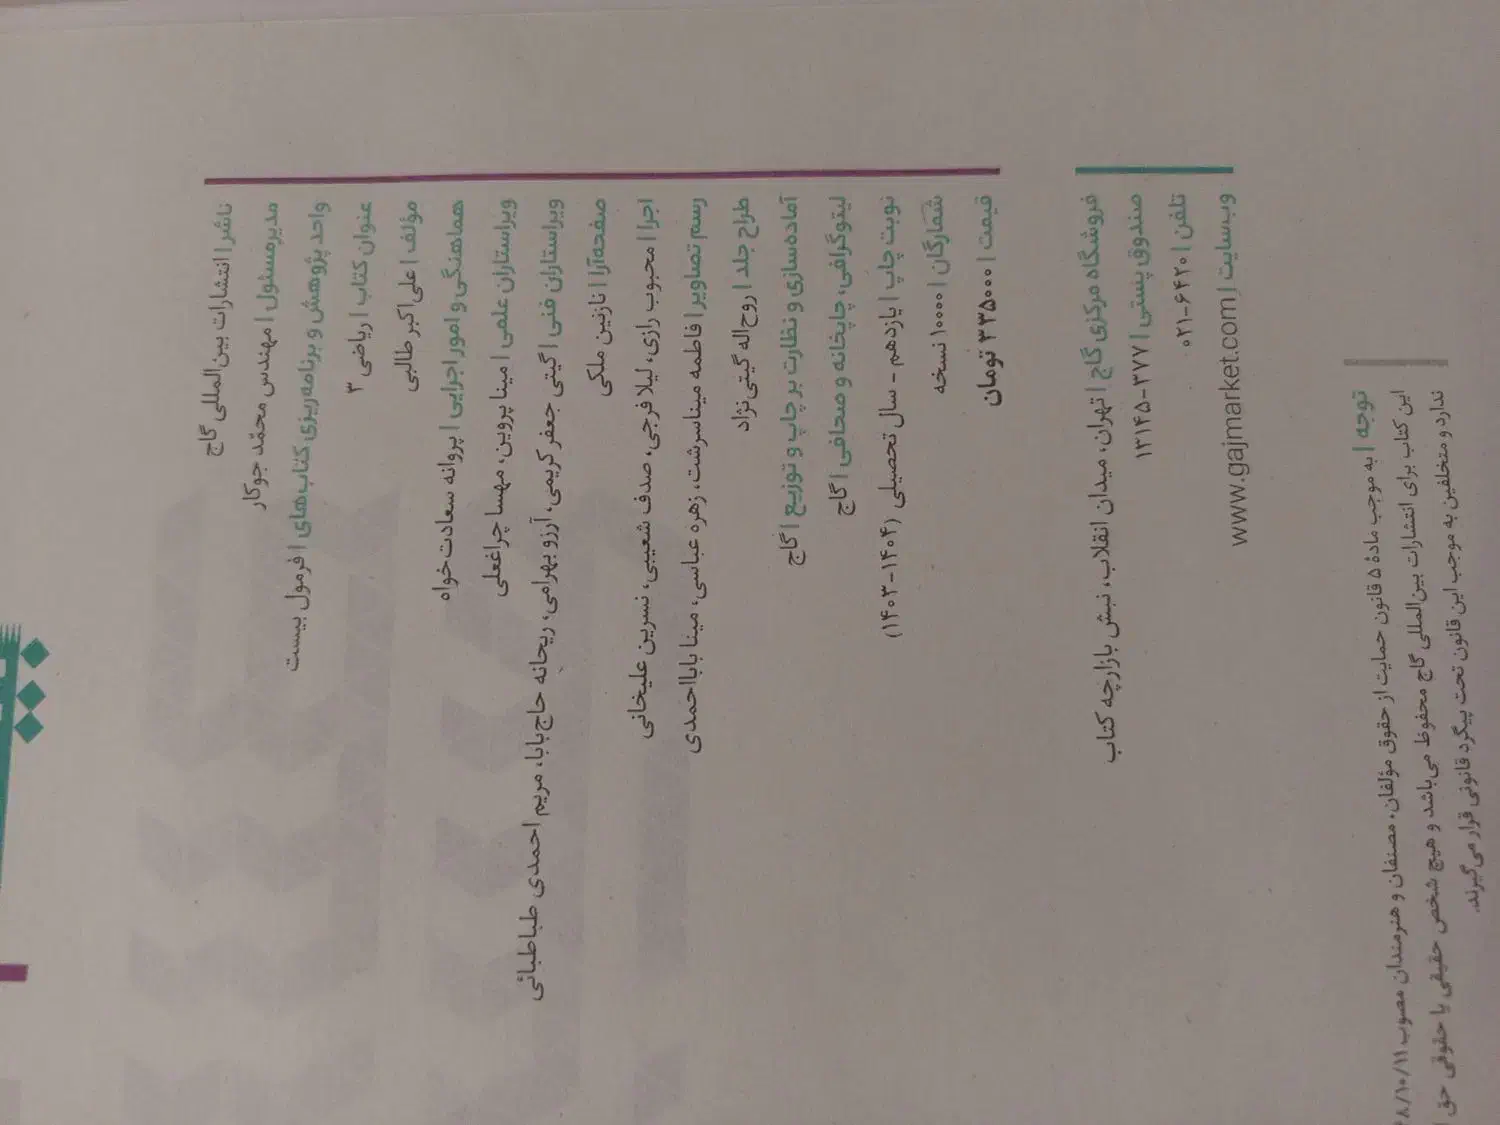 ناشر | انتشارات بین‌المللی گاج
مدیرمسئول | مهندس محمّد جوکار
واحد پژوهش و برنامه‌ریزی کتاب‌های | فرمول بیست
عنوان کتاب | ریاضی ۳
مؤلف | علی‌اکبر طالبی
هماهنگی و امور اجرایی | پروانه سعادت‌خواه
ویراستاران علمی | مینا پروین، مهسا چراغعلی
ویراستاران فنی | گیتی جعفر کریمی، آرزو بهرامی، ریحانه حاج‌بابا، مریم احمدی طباطبائی
صفحه‌آرا | نازنین ملکی
اجرا | محبوب رازی، لیلا فرجی، صدف شعیبی، نسرین علیخانی
رسم تصاویر | فاطمه میناسرشت، زهره عباسی، مینا بابااحمدی
طراح جلد | روح‌اله گیتی‌نژاد
آماده‌سازی و نظارت بر چاپ و توزیع | گاج
لیتوگرافی، چاپخانه و صحافی | گاج
نوبت چاپ | یازدهم - سال تحصیلی (۱۴۰۴-۱۴۰۳)
شمارگان | ۱۰۰۰۰ نسخه
قیمت | ۲۳۵۰۰۰ تومان
فروشگاه مرکزی گاج | تهران، میدان انقلاب، نبش بازارچه کتاب
صندوق پستی | ۳۷۷-۱۳۱۴۵
تلفن | ۶۴۲۰-۰۲۱
وب‌سایت | www.gajmarket.com
توجه | به موجب مادهٔ ۵ قانون حمایت از حقوق مؤلفان، مصنفان و هنرمندان مصوب ۴۸/۱۰/۱۱
این کتاب برای انتشارات بین‌المللی گاج محفوظ می‌باشد و هیچ شخص حقیقی یا حقوقی حق
ندارد و متخلفین به موجب این قانون تحت پیگرد قانونی قرار می‌گیرند.